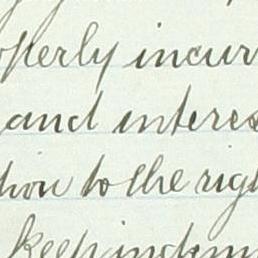 operly incur
and interes
tion to the righ
keep indem